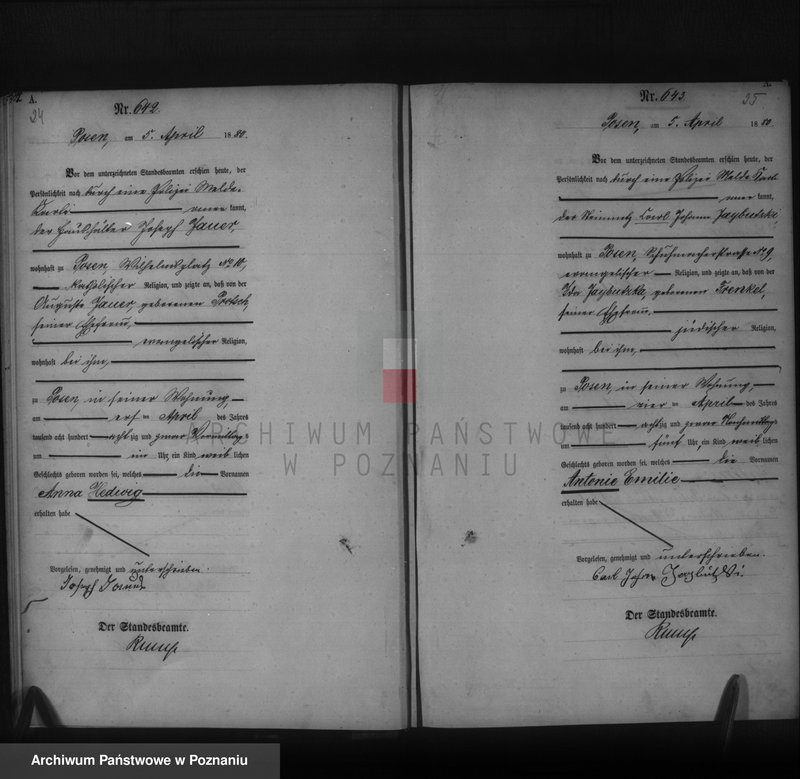 A.
24
Nr. 642.
Posen, am 5. April 1880.
Vor dem unterzeichneten Standesbeamten erschien heute, der
Persönlichkeit nach durch eine Polizei Melde-
Karte kannt,
der Haushälter Joseph
wohnhaft zu Posen, Wilhelmsplatz No 10,
katholischer Religion, und zeigte an, daß von der
Auguste geborenen
seiner Ehefrau,
evangelischer Religion,
wohnhaft bei ihm,
zu Posen, in seiner Wohnung
am April des Jahres
tausend acht hundert achtzig und zwar Vormittags
um Uhr ein Kind weiblichen
Geschlechts geboren worden sei, welches die Vornamen
Anna Hedwig
erhalten habe
Vorgelesen, genehmigt und unterschrieben.
Joseph
Der Standesbeamte.
A.
25
Nr. 643.
Posen, am 5. April 1880.
Vor dem unterzeichneten Standesbeamten erschien heute, der
Persönlichkeit nach durch eine Polizei Melde Karte
kannt,
der Carl Johann
wohnhaft zu Posen, Schuhmacherstrasse No 9,
evangelischer Religion, und zeigte an, daß von der
geborenen Frenkel,
seiner Ehefrau,
jüdischer Religion,
wohnhaft bei ihm,
zu Posen, in seiner Wohnung,
am vier ten April des Jahres
tausend acht hundert achtzig und zwar Nachmittags
um fünf Uhr, ein Kind weiblichen
Geschlechts geboren worden sei, welches die Vornamen
Antonie Emilie
erhalten habe
Vorgelesen, genehmigt und unterschrieben.
Carl
Der Standesbeamte.
ARCHIWUM PAŃSTWOWE
W POZNANIU
Archiwum Państwowe w Poznaniu